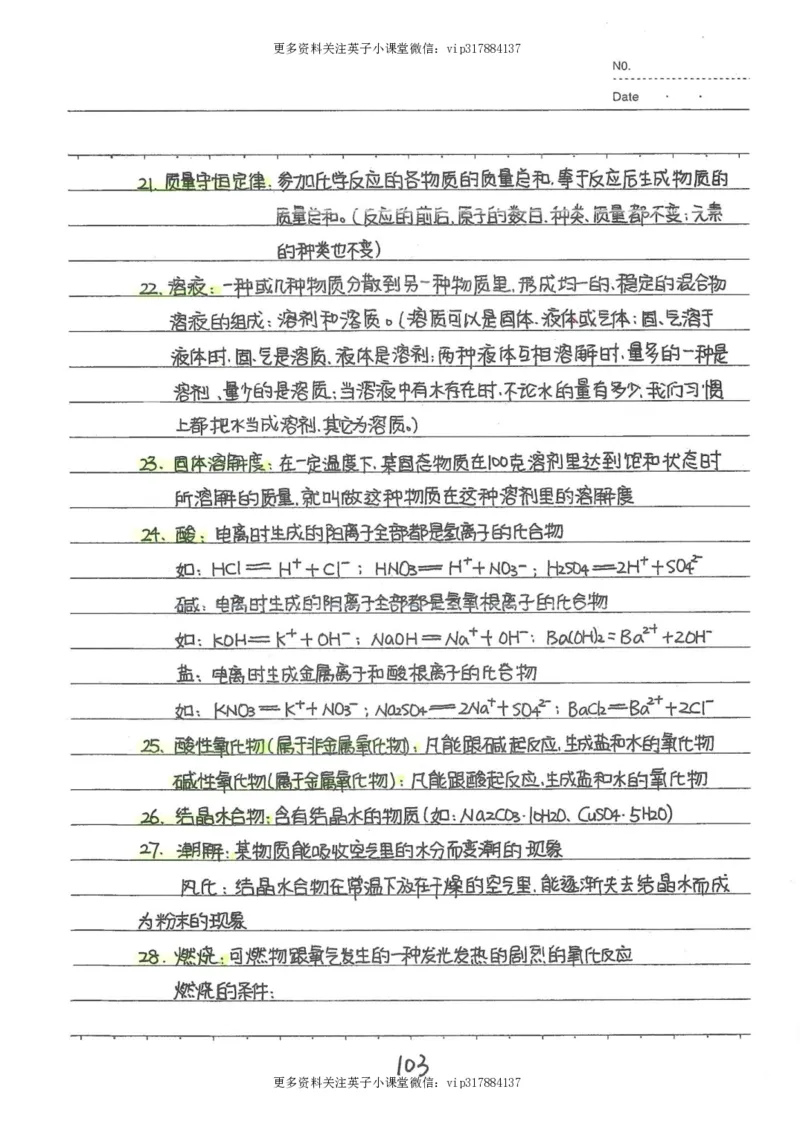 更多资料关注英子小课堂微信：vip317884137
NO.
Date · ·
21. 质量守恒定律：参加化学反应的各物质的质量总和，等于反应后生成物质的
质量总和。（反应的前后，原子的数目、种类、质量都不变；元素
的种类也不变）
22. 溶液：一种或几种物质分散到另一种物质里，形成均一的、稳定的混合物
溶液的组成：溶剂和溶质。（溶质可以是固体、液体或气体；固、气溶于
液体时，固、气是溶质、液体是溶剂；两种液体互相溶解时，量多的一种是
溶剂、量少的是溶质；当溶液中有水存在时，不论水的量有多少，我们习惯
上都把水当成溶剂，其它为溶质。）
23. 固体溶解度：在一定温度下，某固态物质在100克溶剂里达到饱和状态时
所溶解的质量，就叫做这种物质在这种溶剂里的溶解度
24、酸：电离时生成的阳离子全部都是氢离子的化合物
如：HCl == H⁺ + Cl⁻；HNO3 == H⁺ + NO3⁻；H2SO4 == 2H⁺ + SO4²⁻
碱：电离时生成的阴离子全部都是氢氧根离子的化合物
如：KOH == K⁺ + OH⁻；NaOH == Na⁺ + OH⁻；Ba(OH)2 = Ba²⁺ + 2OH⁻
盐：电离时生成金属离子和酸根离子的化合物
如：KNO3 == K⁺ + NO3⁻；Na2SO4 == 2Na⁺ + SO4²⁻；BaCl2 == Ba²⁺ + 2Cl⁻
25、酸性氧化物（属于非金属氧化物）：凡能跟碱起反应，生成盐和水的氧化物
碱性氧化物（属于金属氧化物）：凡能跟酸起反应，生成盐和水的氧化物
26. 结晶水合物：含有结晶水的物质（如：Na2CO3·10H2O、CuSO4·5H2O）
27. 潮解：某物质能吸收空气里的水分而变潮的现象
风化：结晶水合物在常温下放在干燥的空气里，能逐渐失去结晶水而成
为粉末的现象
28. 燃烧：可燃物跟氧气发生的一种发光发热的剧烈的氧化反应
燃烧的条件：
103
更多资料关注英子小课堂微信：vip317884137